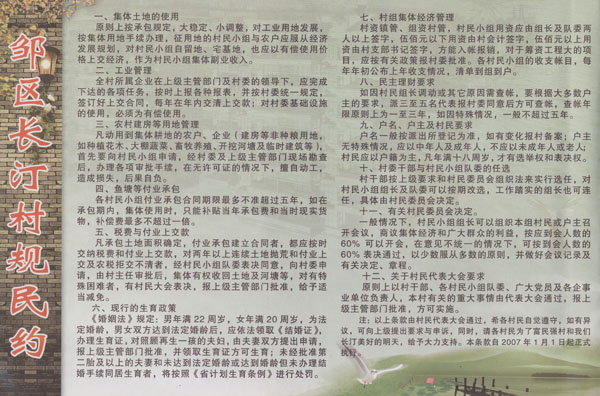 邹区长汀村规民约
一、集体土地的使用
原则上按承包规定，大稳定、小调整，对工业用地发展，
按集体用地手续办理，征用地的村民小组与农户应服从经济
发展规划，对村民小组自留地、宅基地，也应以有偿使用价
格上交经济，作为村民小组集体副业收入。
二、工业管理
全村所属企业在上级主管部门及村委的领导下，应完成
下达的各项任务，按时上报各种报表，并按村委统一规定，
签订好上交合同，每年在年内交清上交款；对村委基础设施
的使用，必须为有偿使用。
三、农村建房等用地管理
凡动用到集体耕地的农户、企业（建房等非种粮用地，
如种植花木、大棚蔬菜、畜牧养殖、开挖河塘及临时建筑等），
首先要向村民小组申请，经村委及上级主管部门现场勘查
后，办理各项审批手续，在无许可证的情况下，擅自动工，
造成损失，后果自负。
四、鱼塘等付业承包
各村民小组付业承包合同期限最多不准超过五年，如在
承包期内，集体使用时，只能补贴当年承包费和当时现实货
物，补偿费最多不超过一倍。
五、税费与付业上交款
凡承包土地面积确定，付业承包建立合同者，都应按时
交纳税费和付业上交款，对两年以上连续土地抛荒和付业上
交及农税拒交不清者，经村民小组队委表决同意，向村委申
请，由村主任审批后，集体有权收回土地及河塘等，对有特
殊困难者，有村民大会表决，报上级部门批准，给予适
当减免。
六、现行的生育政策
《婚姻法》规定：男年满 22 周岁，女年满 20 周岁，为法
定婚龄，男女双方达到法定婚龄后，应依法领取《结婚证》，
办理生育证，对照顾再生一孩的夫妇，由夫妻双方提出申请，
报上级主管部门批准，并领取生育证方可生育；未经批准第
二胎及以上的夫妻和未达到法定婚龄或达到婚龄但未办理结
婚手续同居生育者，将按照《省计划生育条例》进行处罚。
七、村组集体经济管理
村资镇管、组资村管，村民小组用资应由组长及队委两
人以上签字，伍佰元以下用资由村会计签字，伍佰元以上用
资由村支部书记签字，方能入帐报销，对于筹资工程大的项
目，应按有关政策报村委批准。各村民小组的收支帐目，每
年年初公布上年收支情况，清单到组到户。
八、民主理财要求
如因村民组长调动或其它原因需查帐，要根据大多数户
主的要求，派三至五名代表报村委同意后方可查帐，查帐年
限原则上为一至三年，如因特殊情况，一般不超过五年。
九、户名、户主及村民要求
户名一般按派出所登记为准，如有变化报村备案；户主
无特殊情况，应以中年人及成年人，不应以未成年人或老人；
村民应以户籍为主，凡年满十八周岁，才有选举权和表决权。
十、村委干部与村民小组队委的任选
村干部按上级要求和村民委员会组织法来实行选任，对
村民小组组长及队委可以按期改选，工作踏实的组长也可连
任，具体由村民委员会决定。
十一、有关村民委员会决定。
一般情况下，村民小组组长可以组织本组村民或户主召
开会议，商议集体经济和广大群众的利益，按应到会人数的
60% 可以开会，在意见不统一的情况下，可按到会人数的
60% 表决通过，以少数服从多数的原则，并做好会议记录及
有关决定，章程。
十二、关于村民代表大会要求
原则上以村干部、各村民小组队委、广大党员及各企事
业单位负责人，本村有关的重大事情由代表大会通过，报上
级主管部门批准，方可实施。
注：以上条款由村民代表大会通过，希各村民自觉遵守，如有异
议，可向上级提出要求与申诉，同时，请各村民为了富民强村和我们
长汀美好的明天，给予大力支持。本条款自 2007 年 1 月 1 日起正式
执行。